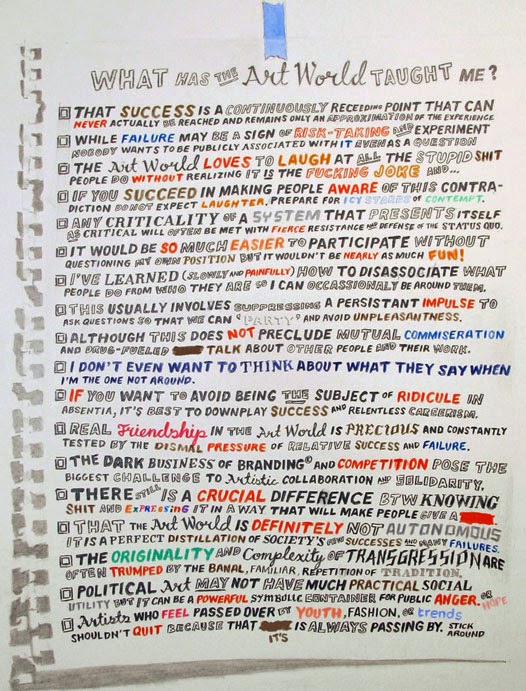 WHAT HAS THE Art World TAUGHT ME?
THAT SUCCESS IS A CONTINUOUSLY RECEEDING POINT THAT CAN
NEVER ACTUALLY BE REACHED AND REMAINS ONLY AN APPROXIMATION OF THE EXPERIENCE
WHILE FAILURE MAY BE A SIGN OF RISK-TAKING AND EXPERIMENT
NOBODY WANTS TO BE PUBLICLY ASSOCIATED WITH IT EVEN AS A QUESTION
THE Art World LOVES TO LAUGH AT ALL THE STUPID SHIT
PEOPLE DO WITHOUT REALIZING IT IS THE FUCKING JOKE AND...
IF YOU SUCCEED IN MAKING PEOPLE AWARE OF THIS CONTRA-
DICTION DO NOT EXPECT LAUGHTER, PREPARE FOR ICY STARES OF CONTEMPT.
ANY CRITICALITY OF A SYSTEM THAT PRESENTS ITSELF
AS CRITICAL WILL OFTEN BE MET WITH FIERCE RESISTANCE AND DEFENSE OF THE STATUS QUO.
IT WOULD BE SO MUCH EASIER TO PARTICIPATE WITHOUT
QUESTIONING MY OWN POSITION BUT IT WOULDN'T BE NEARLY AS MUCH FUN!
I'VE LEARNED (SLOWLY AND PAINFULLY) HOW TO DISASSOCIATE WHAT
PEOPLE DO FROM WHO THEY ARE SO I CAN OCCASSIONALY BE AROUND THEM.
THIS USUALLY INVOLVES SUPPRESSING A PERSISTANT IMPULSE TO
ASK QUESTIONS SO THAT WE CAN "PARTY" AND AVOID UNPLEASANTNESS.
ALTHOUGH THIS DOES NOT PRECLUDE MUTUAL COMMISERATION
AND DRUG-FUELED TALK ABOUT OTHER PEOPLE AND THEIR WORK.
I DON'T EVEN WANT TO THINK ABOUT WHAT THEY SAY WHEN
I'M THE ONE NOT AROUND.
IF YOU WANT TO AVOID BEING THE SUBJECT OF RIDICULE IN
ABSENTIA, IT'S BEST TO DOWNPLAY SUCCESS AND RELENTLESS CAREERISM.
REAL Friendship IN THE Art World IS PRECIOUS AND CONSTANTLY
TESTED BY THE DISMAL PRESSURE OF RELATIVE SUCCESS AND FAILURE.
THE DARK BUSINESS OF BRANDING® AND COMPETITION POSE THE
BIGGEST CHALLENGE TO Artistic COLLABORATION AND SOLIDARITY.
THERE STILL IS A CRUCIAL DIFFERENCE BTW KNOWING
SHIT AND EXPRESSING IT IN A WAY THAT WILL MAKE PEOPLE GIVE A
THAT THE Art World IS DEFINITELY NOT AUTONOMOUS
IT IS A PERFECT DISTILLATION OF SOCIETY'S FEW SUCCESSES AND MANY FAILURES.
THE ORIGINALITY AND Complexity OF TRANSGRESSION ARE
OFTEN TRUMPED BY THE BANAL, FAMILIAR, REPETITION OF TRADITION.
POLITICAL Art MAY NOT HAVE MUCH PRACTICAL SOCIAL
UTILITY BUT IT CAN BE A POWERFUL SYMBOLIC CONTAINER FOR PUBLIC ANGER. OR HOPE
Artists WHO FEEL PASSED OVER BY YOUTH, FASHION, OR trends
SHOULDN'T QUIT BECAUSE THAT IS ALWAYS PASSING BY. STICK AROUND
IT'S